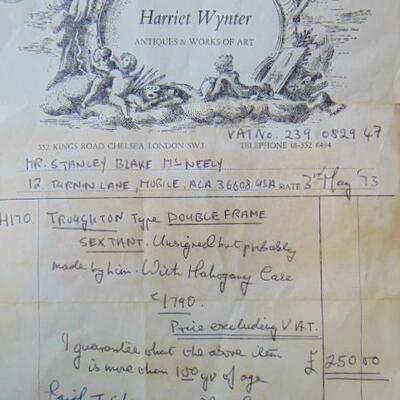 Harriet Wynter
ANTIQUES & WORKS OF ART
VAT No. 239 0829 47
352 KINGS ROAD CHELSEA LONDON SW3 TELEPHONE 01-352 6494
MR. STANLEY BLAKE McNEELY
12, TURNIN LANE, MOBILE, ALA 36608. USA DATE 3rd May 73
H170 TROUGHTON Type DOUBLE FRAME
SEXTANT. Unsigned but probably
made by him. With Mahogany Case
c 1790.
Price excluding V.A.T.
I guarantee that the above item £ 250 00
is more than 100 yrs of age
Paid